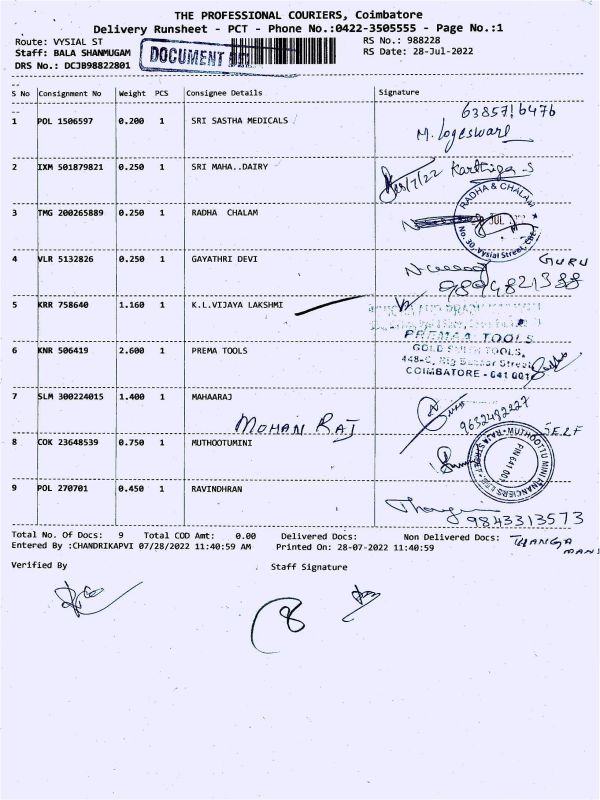 THE PROFESSIONAL COURIERS, Coimbatore
Delivery Runsheet - PCT - Phone No.:0422-3505555 - Page No.:1
Route: VYSIAL ST
RS No.: 988228
Staff: BALA SHANMUGAM
DOCUMENT
RS Date: 28-Jul-2022
DRS No.: DCJB98822801
S No Consignment No Weight PCS Consignee Details Signature
1 POL 1506597 0.200 1 SRI SASTHA MEDICALS
M. Logeswari
2 IXM 501879821 0.250 1 SRI MAHA..DAIRY
Karthiga S
3 TMG 200265889 0.250 1 RADHA CHALAM
RADHA & CHALAM
No. 30, Vysial Street, CBE-1
4 VLR 5132826 0.250 1 GAYATHRI DEVI
GURU
5 KRR 758640 1.160 1 K.L.VIJAYA LAKSHMI
6 KNR 506419 2.600 1 PREMA TOOLS
PREMAA TOOLS
GOLD SMITH TOOLS,
448-C, Big Bazaar Street
COIMBATORE - 641 001
7 SLM 300224015 1.400 1 MAHAARAJ
9632482227
MOHAN RAJ
SELF
8 COK 23648539 0.750 1 MUTHOOTUMINI
MUTHOOTTU MINI FINANCIERS
PIN 641 001
9 POL 270701 0.450 1 RAVINDHRAN
9843313573
Total No. Of Docs: 9 Total COD Amt: 0.00 Delivered Docs: Non Delivered Docs:
THANGA MANI
Entered By :CHANDRIKAPVI 07/28/2022 11:40:59 AM Printed On: 28-07-2022 11:40:59
Verified By Staff Signature
8